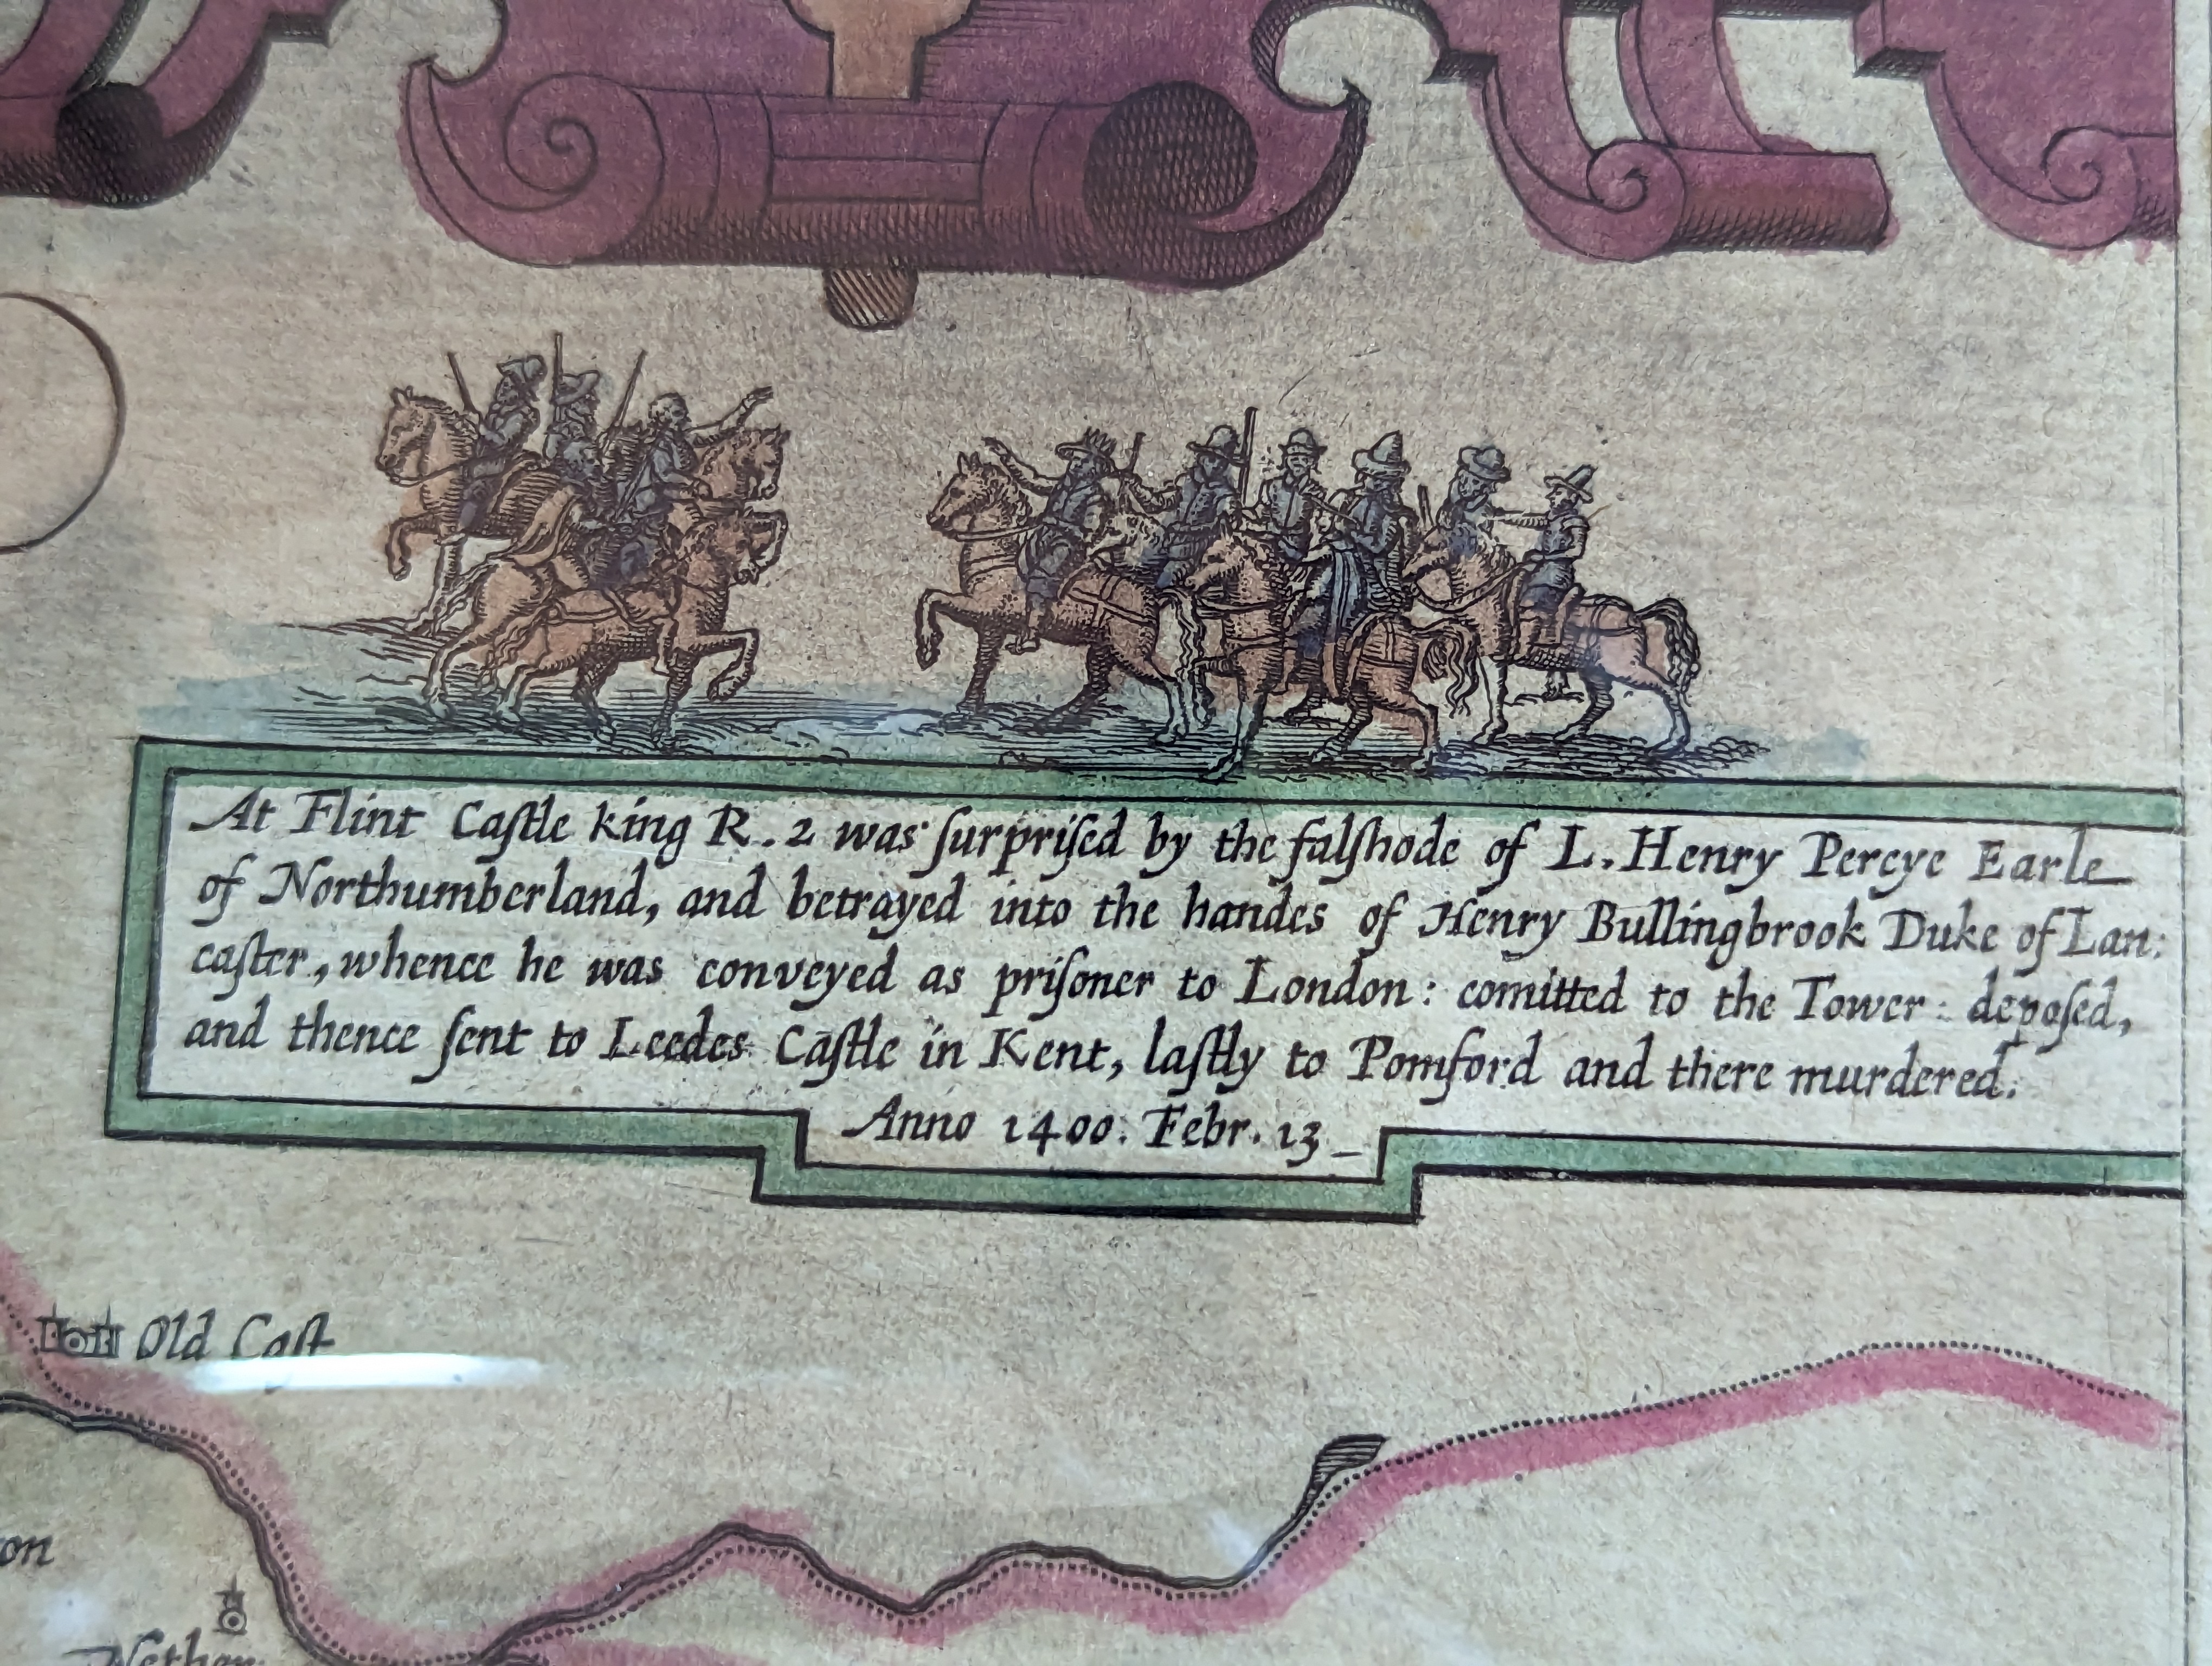 At Flint Caſtle king R. 2 was ſurpriſed by the falſhode of L. Henry Percye Earle
of Northumberland, and betrayed into the handes of Henry Bullingbrook Duke of Lan:
caſter, whence he was conveyed as priſoner to London: comitted to the Tower: depoſed,
and thence ſent to Leedes Caſtle in Kent, laſtly to Pomford and there murdered.
Anno 1400. Febr. 13_
Old Caſt
on
Nether